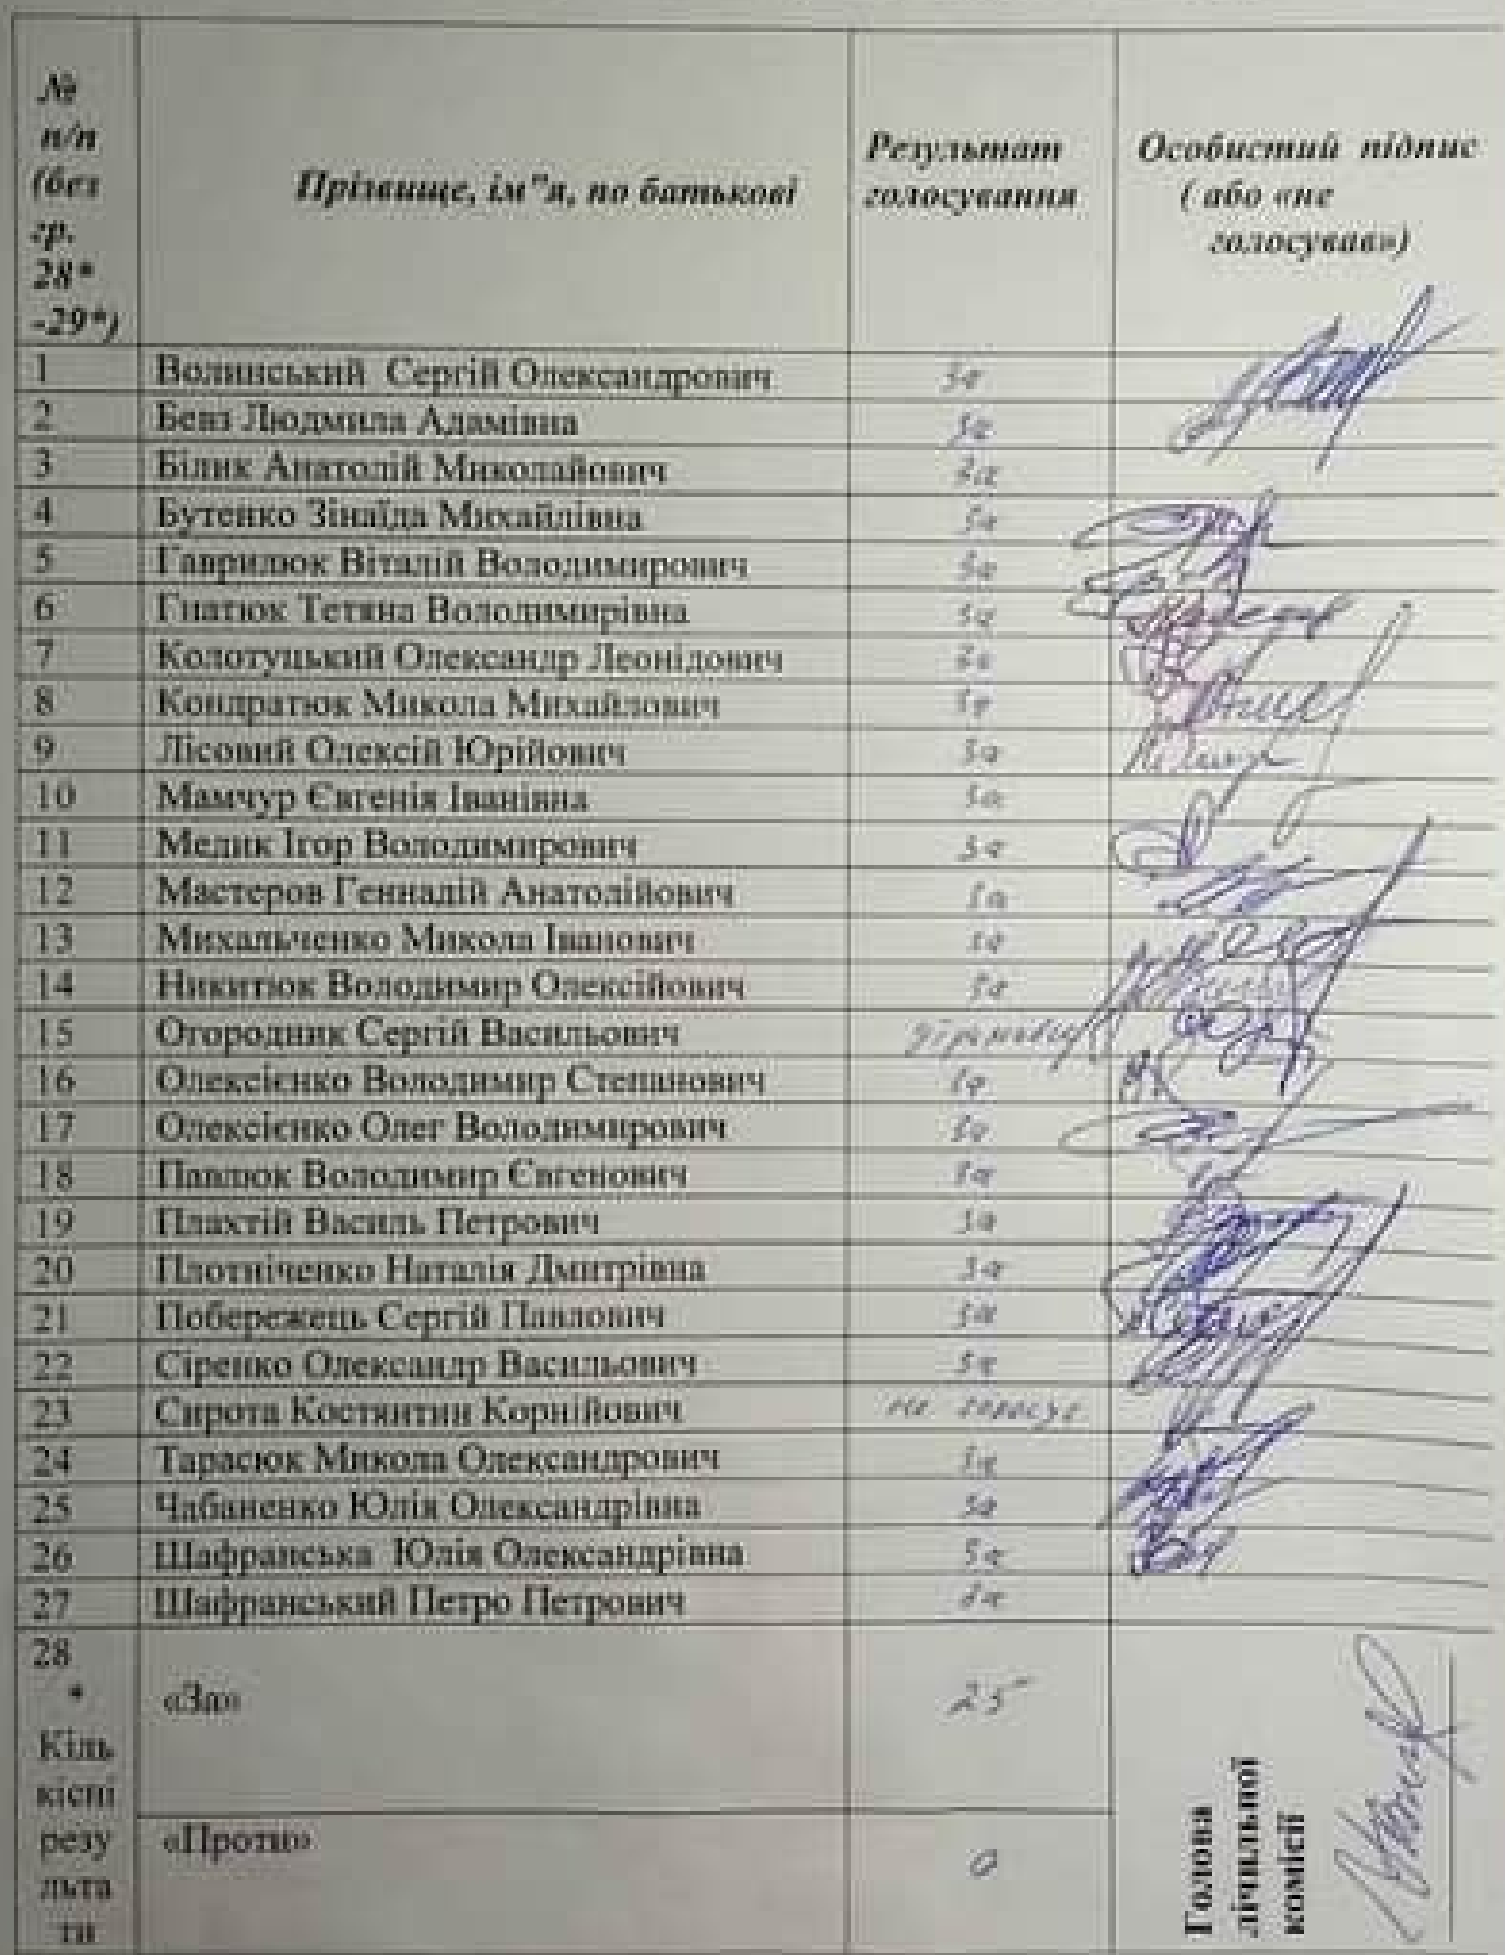 № п/п (без гр. 28* -29*) Прізвище, ім"я, по батькові Результат голосування Особистий підпис ( або «не голосував»)
1 Волинський Сергій Олександрович за
2 Бевз Людмила Адамівна за
3 Білик Анатолій Миколайович за
4 Бутенко Зінаїда Михайлівна за
5 Гаврилюк Віталій Володимирович за
6 Гнатюк Тетяна Володимирівна за
7 Колотуцький Олександр Леонідович за
8 Кондратюк Микола Михайлович за
9 Лісовий Олексій Юрійович за
10 Мамчур Євгенія Іванівна за
11 Медик Ігор Володимирович за
12 Мастеров Геннадій Анатолійович за
13 Михальченко Микола Іванович за
14 Никитюк Володимир Олексійович за
15 Огородник Сергій Васильович
16 Олексієнко Володимир Степанович за
17 Олексієнко Олег Володимирович за
18 Павлюк Володимир Євгенович за
19 Плахтій Василь Петрович за
20 Плотніченко Наталія Дмитрівна за
21 Побережець Сергій Павлович за
22 Сіренко Олександр Васильович за
23 Сирота Костянтин Корнійович не голосує
24 Тарасюк Микола Олександрович за
25 Чабаненко Юлія Олександрівна за
26 Шафранська Юлія Олександрівна за
27 Шафранський Петро Петрович за
28
* Кіль кісні резу льта ти
«За» 25
«Проти» 0
Голова
лічильної
комісії